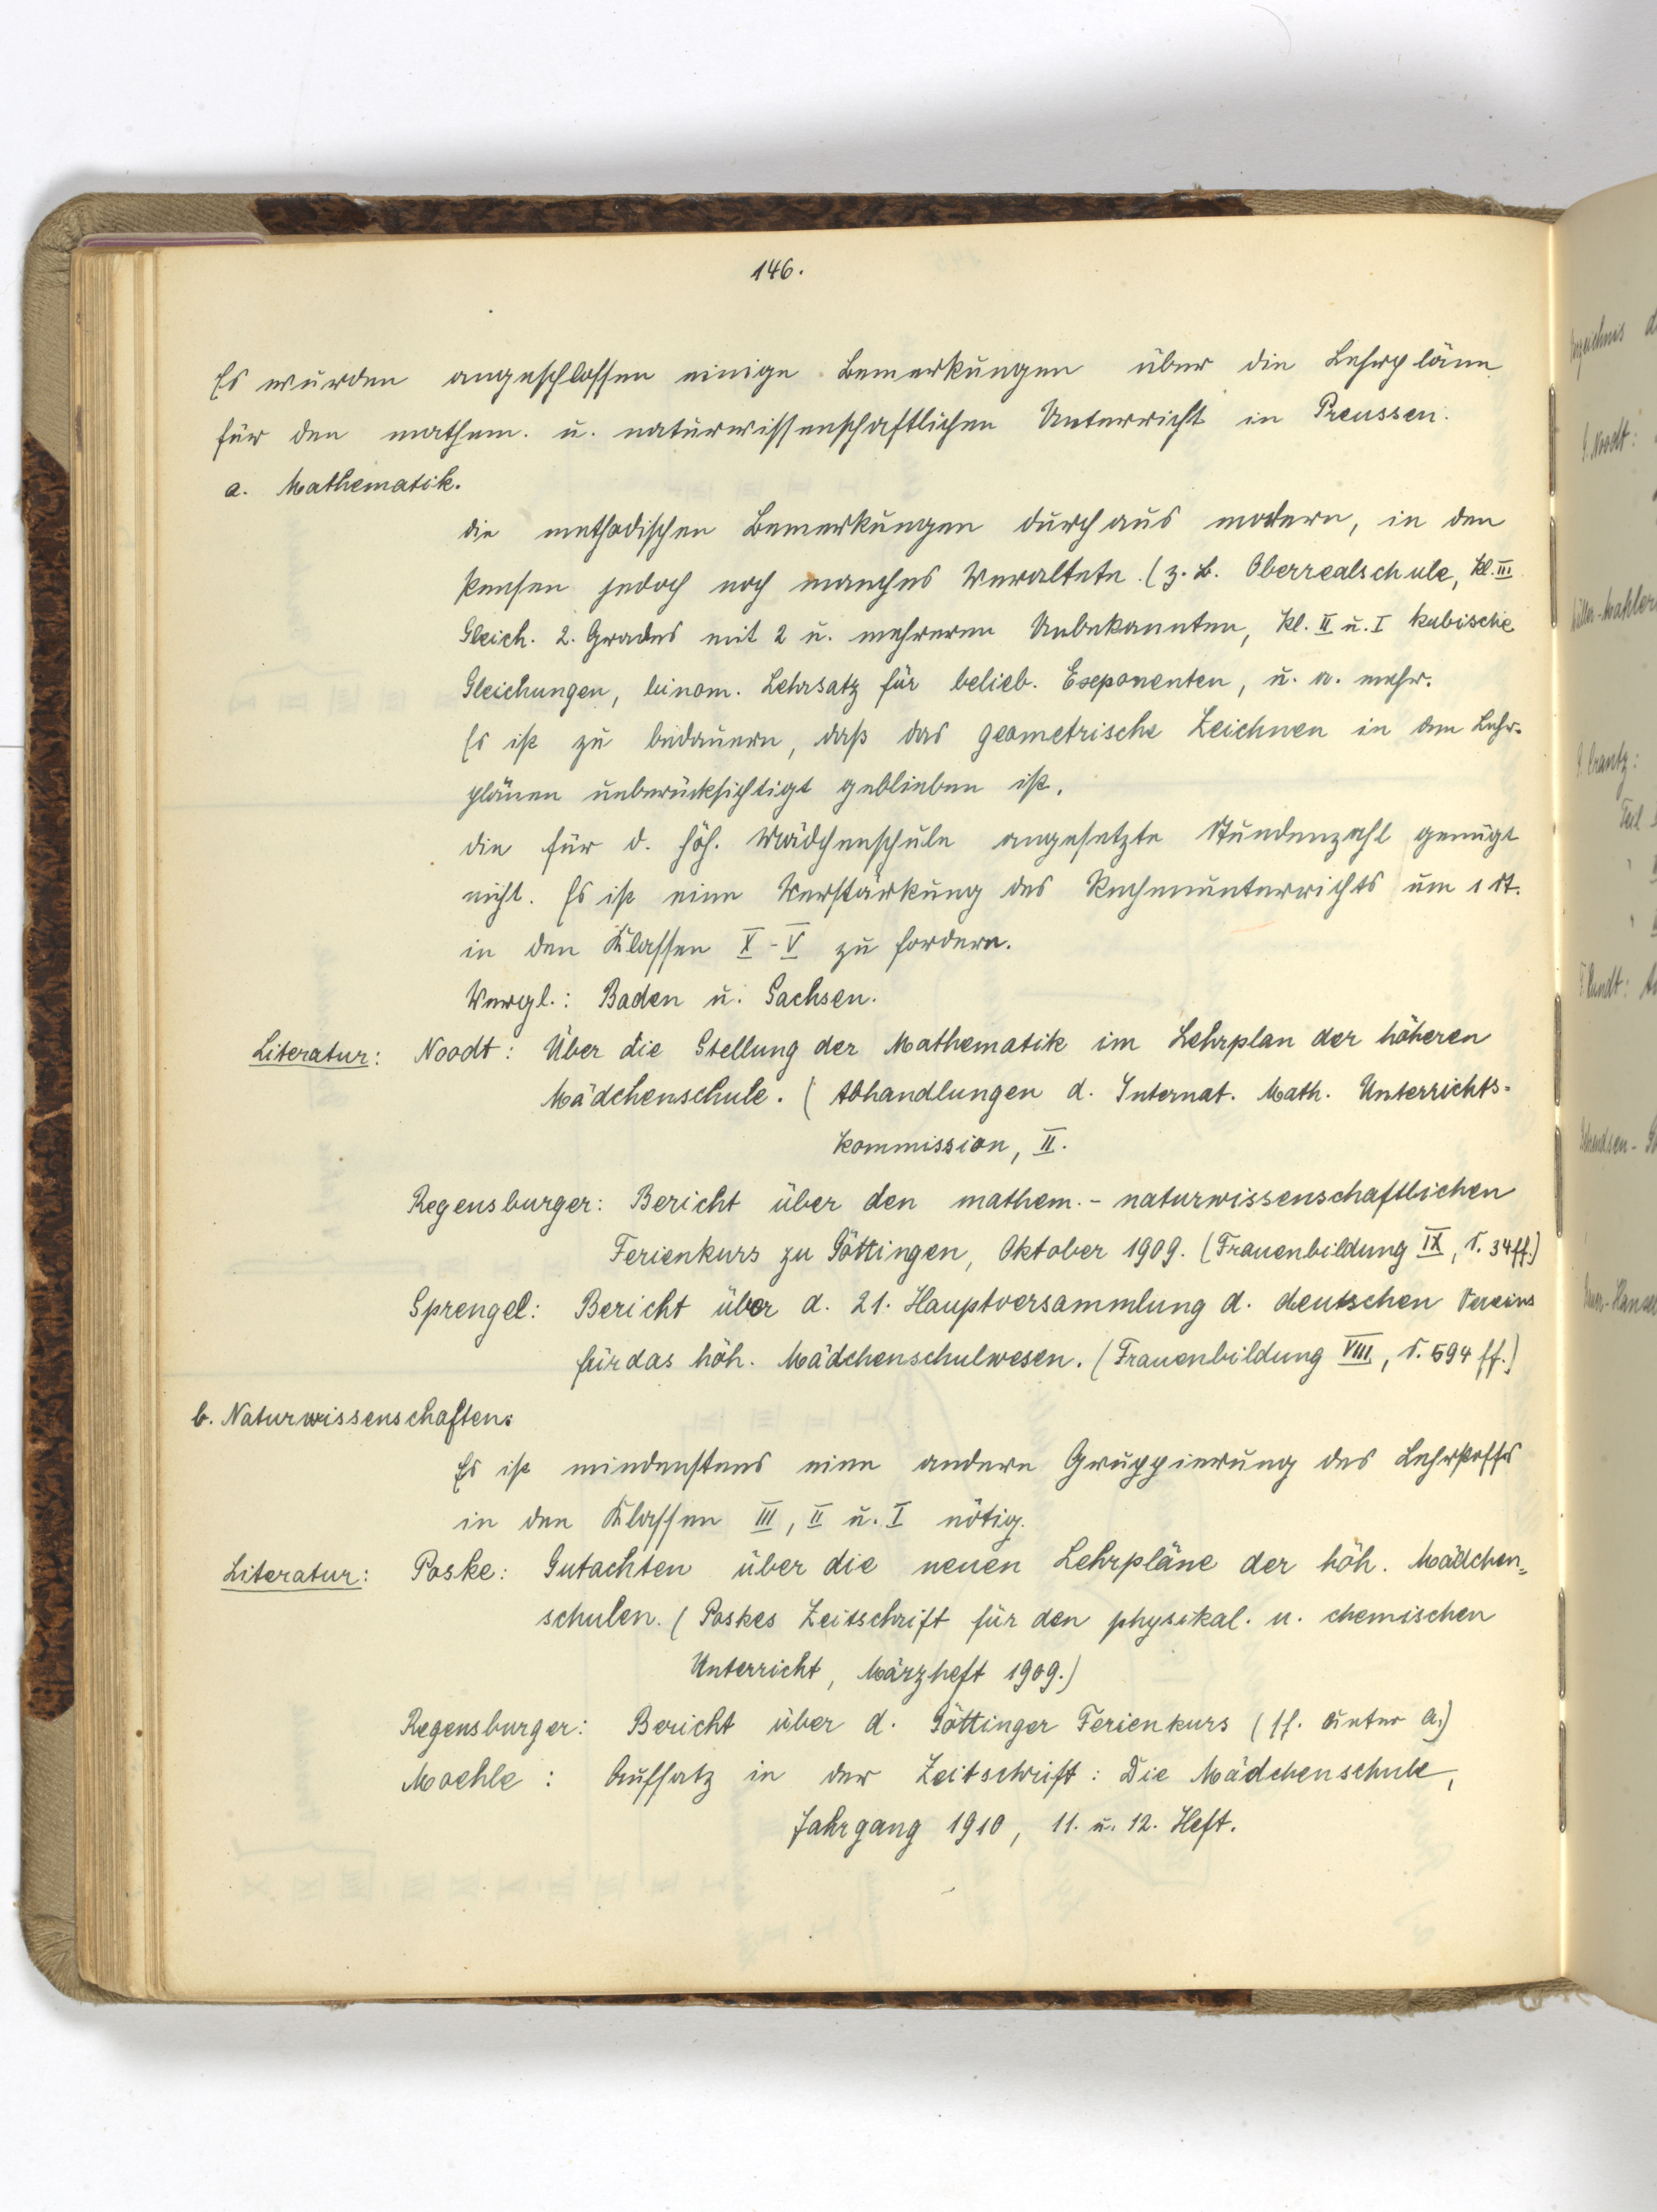 146.
Es wurden angeschlossen einige Bemerkungen über die Lehrpläne
für den mathem. u. naturwissenschaftlichen Unterricht in Preussen.
a. Mathematik.
die methodischen Bemerkungen durchaus modern, in den
Pensen jedoch noch manches Veraltete. (z. B. Oberrealschule, Kl. III
Gleich. 2. Grades mit 2 u. mehreren Unbekannten, Kl. II u. I kubische
Gleichungen, binom. Lehrsatz für belieb. Exponenten, u. a. mehr.
Es ist zu bedauern, daß das geometrische Zeichnen in den Lehr-
plänen unberücksichtigt geblieben ist.
die für d. höh. Mädchenschule angesetzte Stundenzahl genügt
nicht. Es ist eine Verstärkung des Rechenunterrichts um 1 St.
in den Klassen X - V zu fordern.
Vergl.: Baden u. Sachsen.
Literatur: Noodt: Über die Stellung der Mathematik im Lehrplan der höheren
Mädchenschule. (Abhandlungen d. Internat. Math. Unterrichts-
kommission, II.
Regensburger: Bericht über den mathem.- naturwissenschaftlichen
Ferienkurs zu Göttingen, Oktober 1909. (Frauenbildung IX, S. 34 ff.)
Sprengel: Bericht über d. 21. Hauptversammlung d. deutschen Vereins
für das höh. Mädchenschulwesen. (Frauenbildung VIII, S. 594 ff.)
b. Naturwissenschaften.
Es ist mindenstens eine andere Gruppierung des Lehrstoffs
in den Klassen III, II u. I nötig.
Literatur: Poske: Gutachten über die neuen Lehrpläne der höh. Mädchen-
schulen. (Poskes Zeitschrift für den physikal. u. chemischen
Unterricht, Märzheft 1909.)
Regensburger: Bericht über d. Göttinger Ferienkurs (ff. unter a.)
Moehle: Aufsatz in der Zeitschrift: Die Mädchenschule,
Jahrgang 1910, 11. u. 12. Heft.